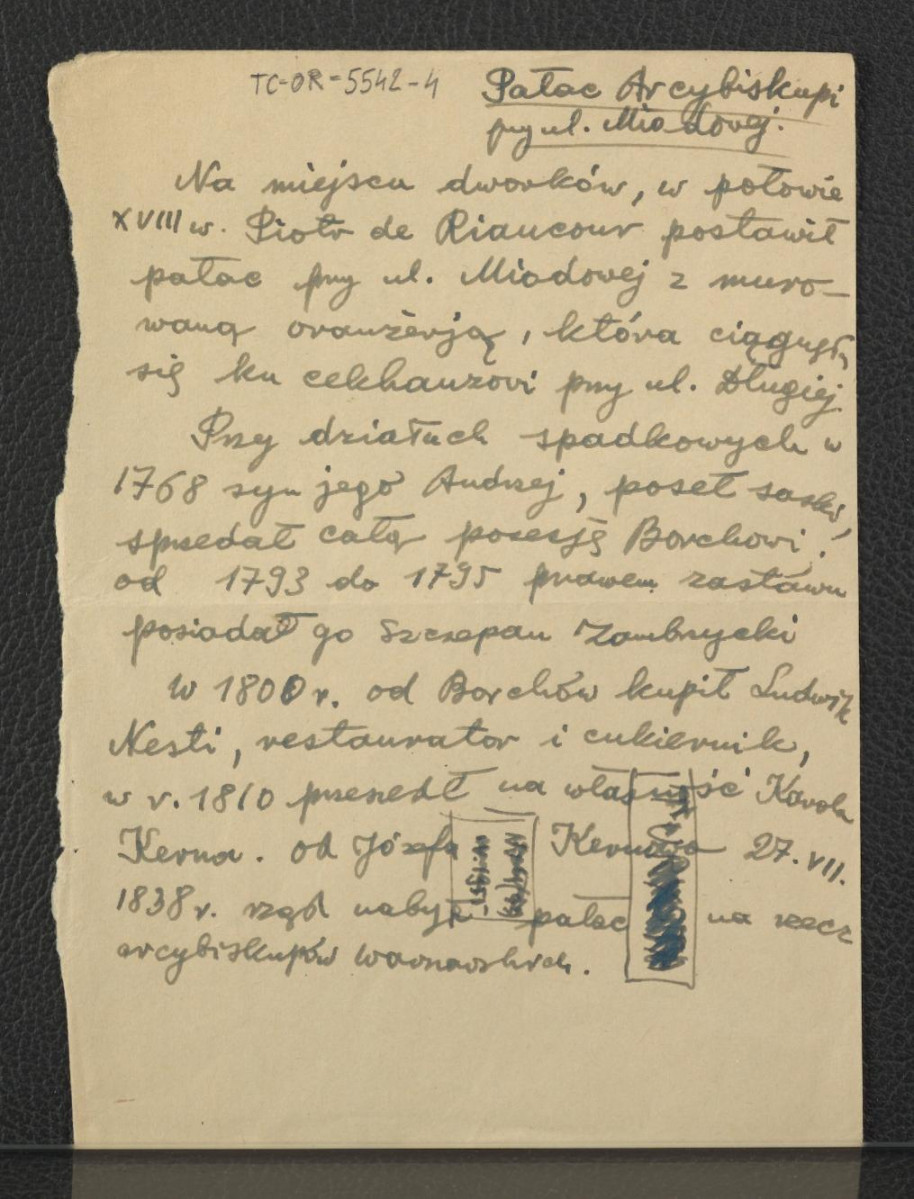 TC-OR-5542-4
Pałac Arcybiskupi
przy ul. Miodowej.
Na miejscu dworków, w połowie
XVIII w. Piotr de Riaucour postawił
pałac przy ul. Miodowej z muro-
waną oranżerją, która ciągnęła
się ku cekhauzowi przy ul. Długiej.
Przy działach spadkowych w
1768 syn jego Andrzej, poseł saski,
sprzedał całą posesję Borchowi;
od 1793 do 1795 prawem zastawu
posiadał go Szczepan Zambrzycki
W 1800 r. od Borchów kupił Ludwik
Nesti, restaurator i cukiernik,
w r. 1810 przeszedł na własność Karola
Kerna. od Józefa Kerna 27. VII.
1838 r. rząd nabył pałac na rzecz
arcybiskupów warszawskich.